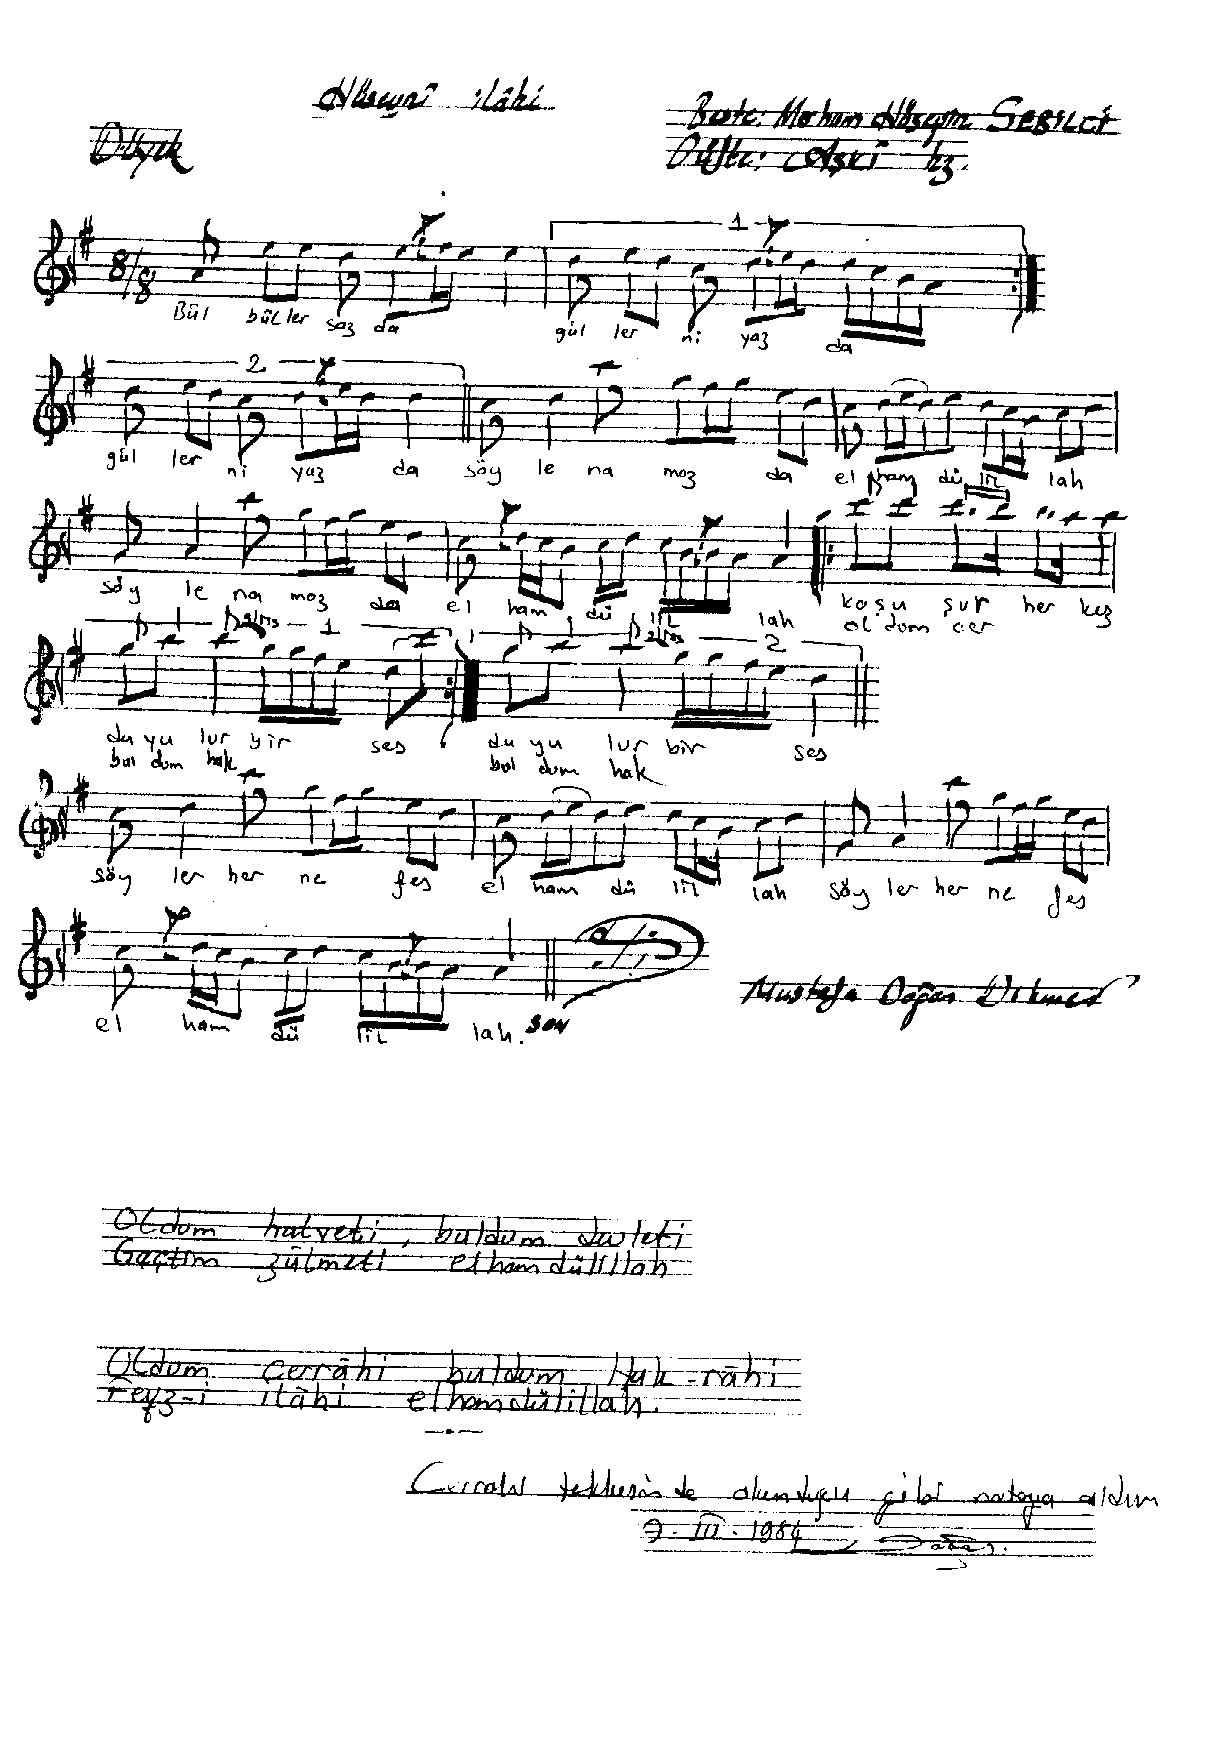 Hüseynî ilâhi
Beste: Merhum Hüseyin SEBİLCİ
Düyek
Güfte: Aşki hz.
8/8
1
Bül bül ler saz da gül ler ni yaz da
2
gül ler ni yaz da söy le na maz da el ham dü lil lah
söy le na maz da el ham dü lil lah ko şu şur her kez
ol dum cer
1 2
du yu lur bir ses du yu lur bir ses
bul dum hak bul dum hak
söy ler her ne fes el ham dü lil lah söy ler her ne fes
el ham dü lil lah. SON
Mustafa Doğan Dikmen
Oldum halveti, buldum devleti
Gaçtım zülmeti elhamdülillah
Oldum Cerrâhi buldum Hak-râhi
Feyz-i ilâhi elhamdülillah.
Cerrahi tekkesinde okunduğu gibi notaya aldım
9.III.1984